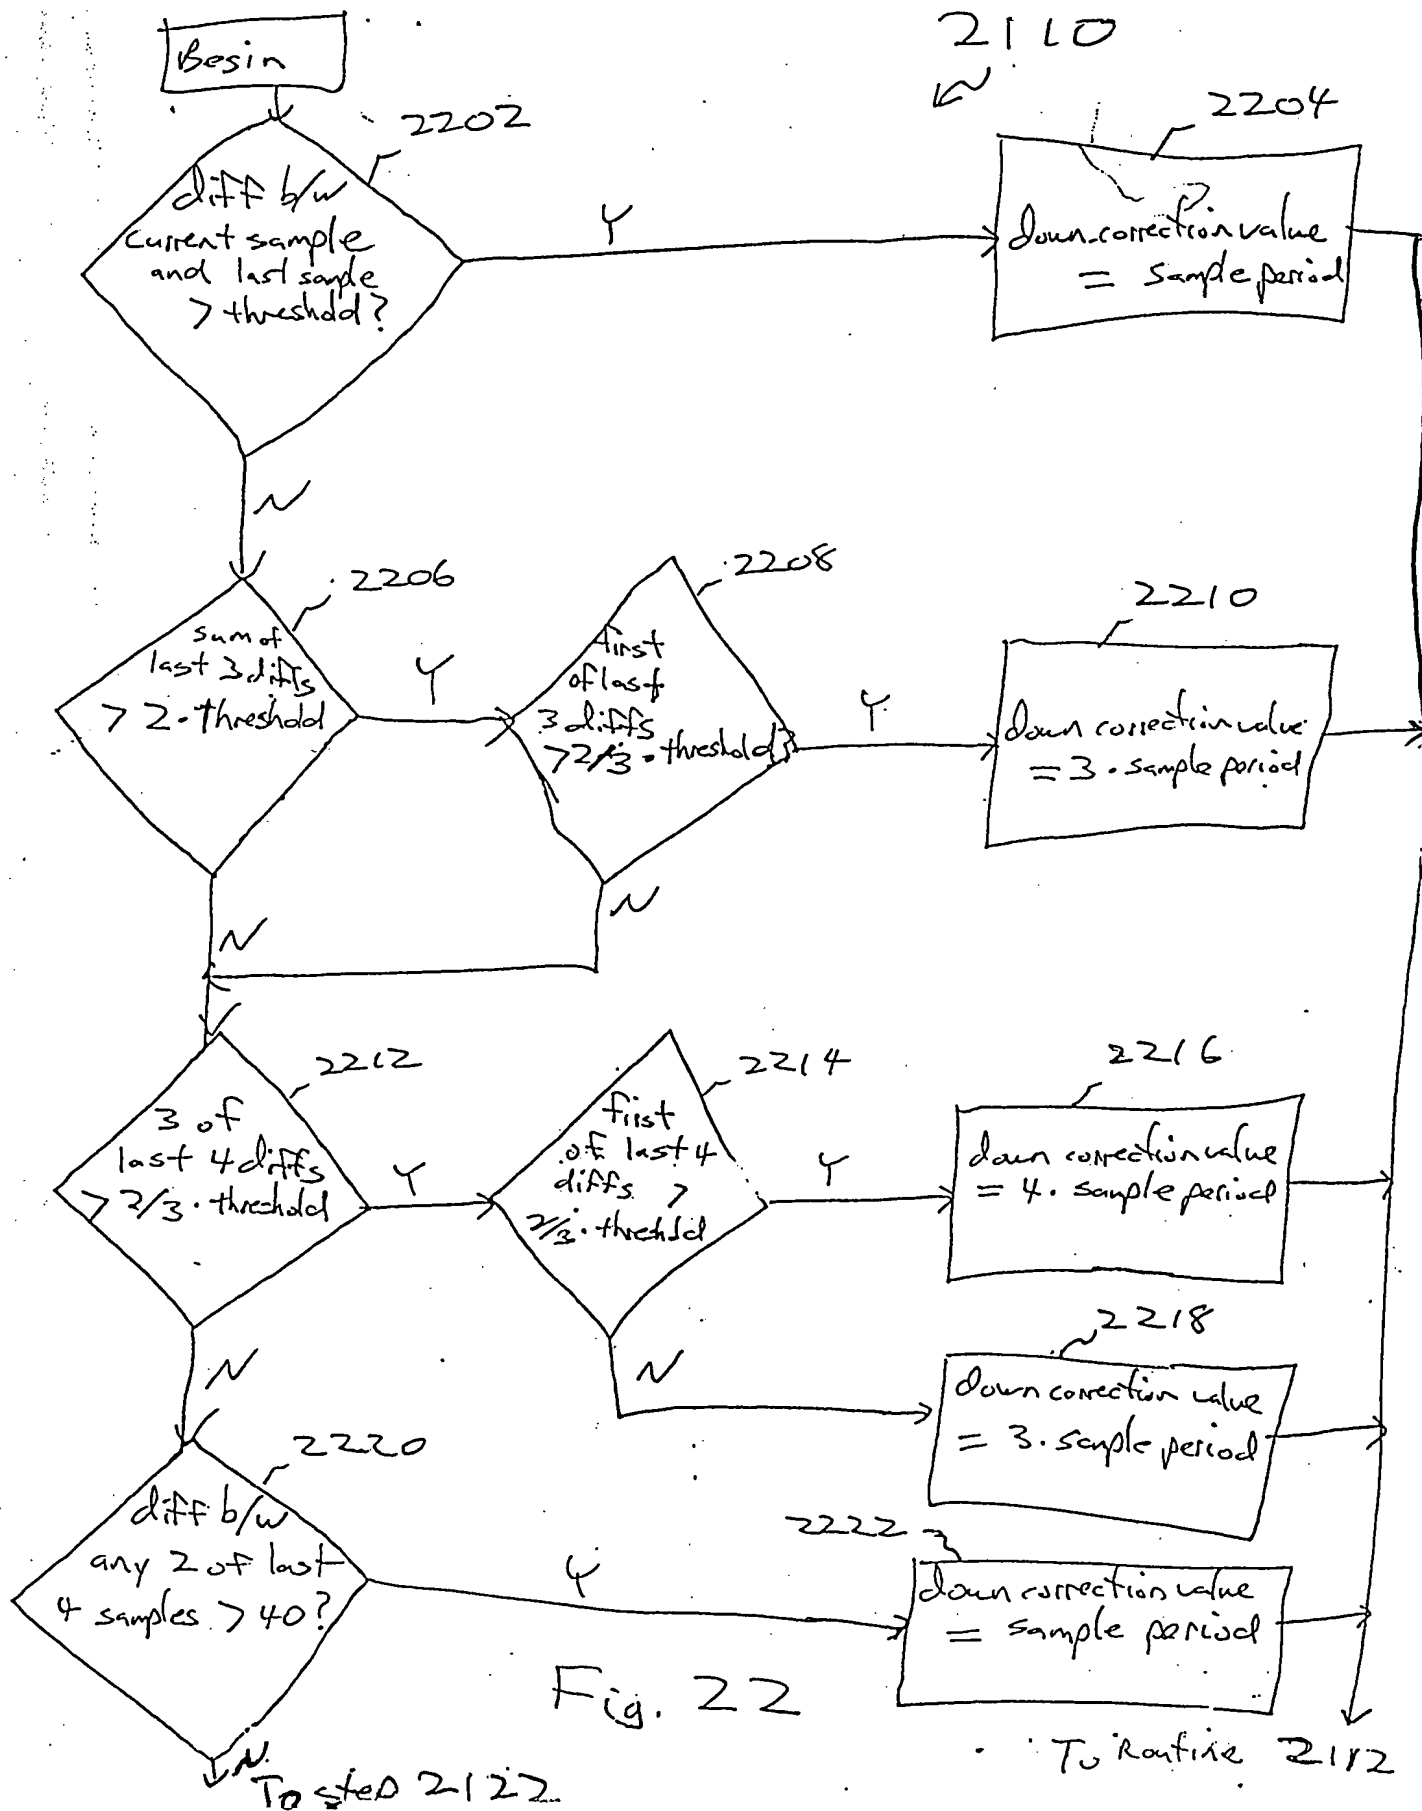 Begin
2110
2202
2204
diff b/w
current sample
and last sample
> threshold?
Y
down-correction value
= sample period
N
2206
2208
2210
sum of
last 3 diffs
> 2·threshold
Y
first
of last
3 diffs
> 2/3·threshold
Y
down correction value
= 3·sample period
N
N
2212
2214
2216
3 of
last 4 diffs
> 2/3·threshold
Y
first
of last 4
diffs >
2/3·threshold
Y
down correction value
= 4·sample period
N
N
2218
down correction value
= 3·sample period
2220
diff b/w
any 2 of last
4 samples > 40?
Y
2222
down correction value
= sample period
Fig. 22
N
To step 2122
To Routine 2112